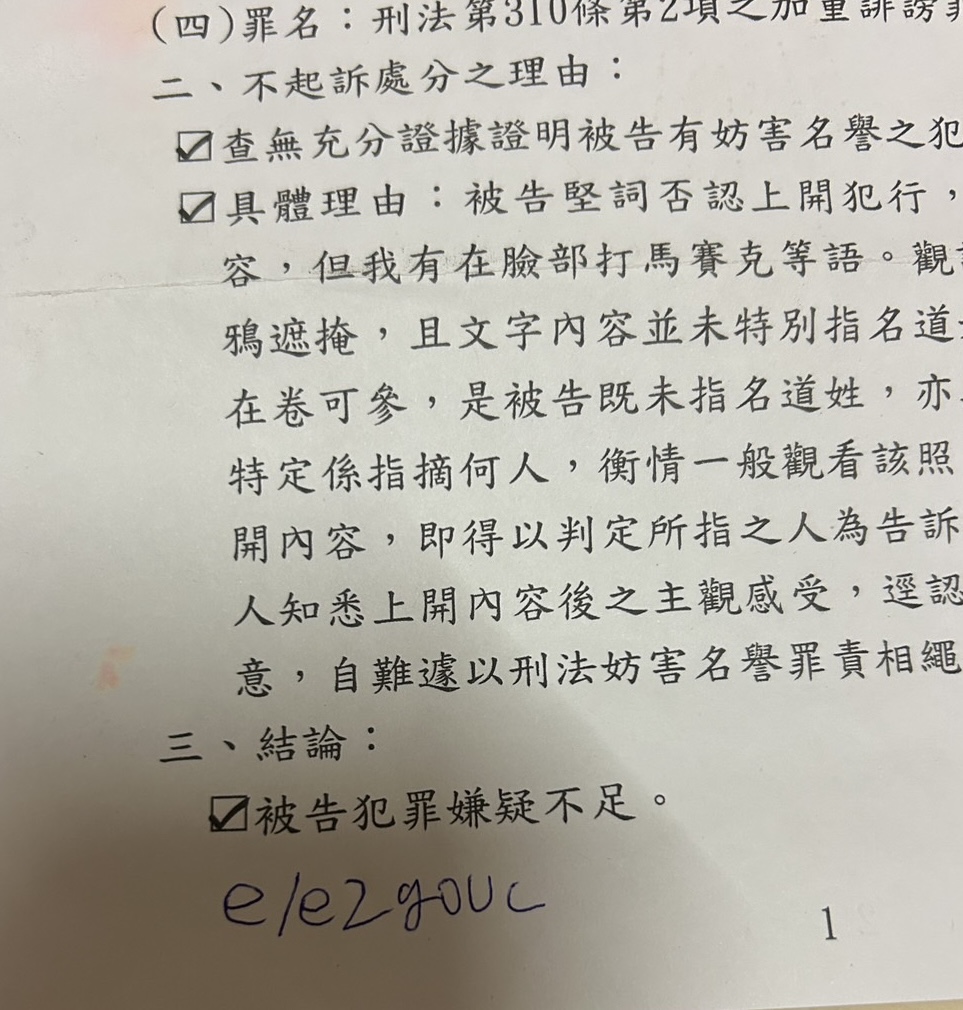 (四)罪名：刑法第310條第2項之加重誹謗罪
二、不起訴處分之理由：
☑查無充分證據證明被告有妨害名譽之犯
☑具體理由：被告堅詞否認上開犯行，
容，但我有在臉部打馬賽克等語。觀
鴉遮掩，且文字內容並未特別指名道
在卷可參，是被告既未指名道姓，亦
特定係指摘何人，衡情一般觀看該照
開內容，即得以判定所指之人為告訴
人知悉上開內容後之主觀感受，逕認
意，自難遽以刑法妨害名譽罪責相繩
三、結論：
☑被告犯罪嫌疑不足。
e/e2gouc
1